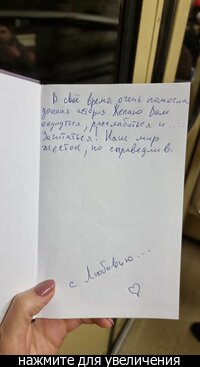 В своё время очень помогла
данная история. Желаю Вам
окунуться, расслабиться и....
Зачитаться! Наш мир
жесток, но справедлив.
с Любовью...
нажмите для увеличения